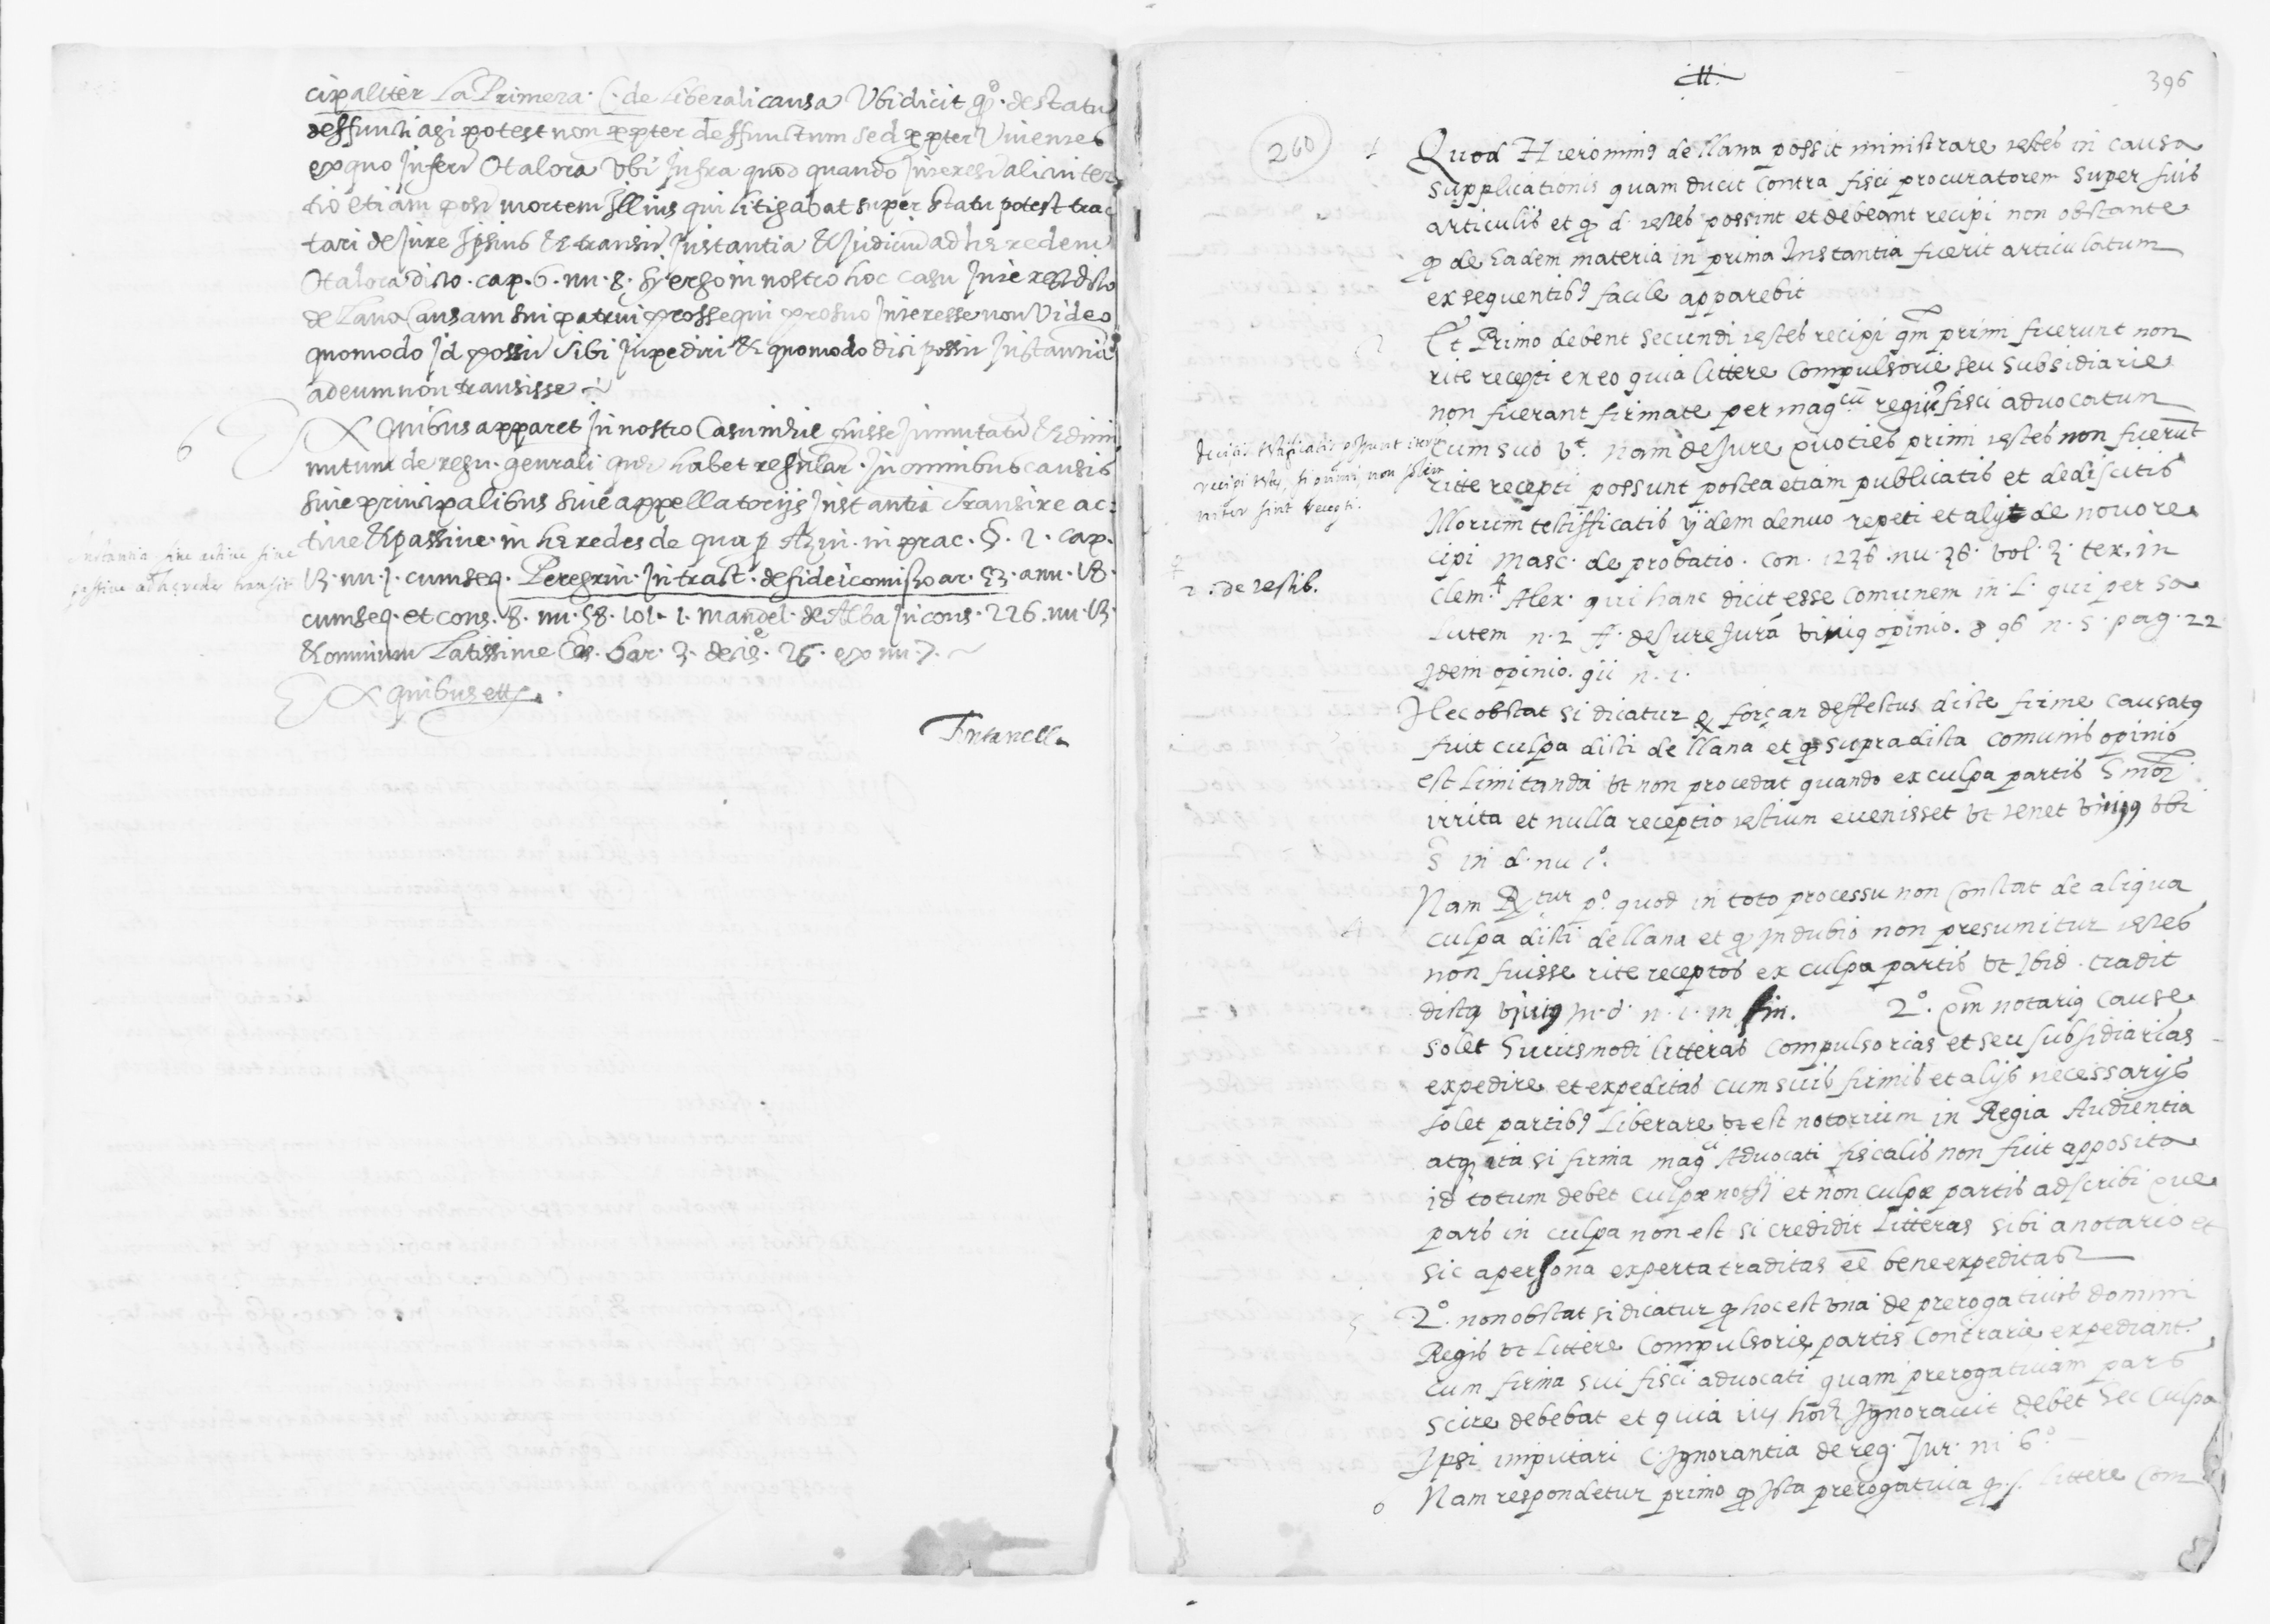 cipaliter La Primera. C. de Liberali causa Ubi dicit qº. de statu
deffuncti agi potest non propter deffunctum sed propter Viventes
ex quo infert Otalora Ubi infra quod quando interest alicui ter
tio etiam post mortem Illius qui litigabat super statu potest trac
tari de jure Ipsius et transit instantia et judiciu ad heredem
Otalora dicto. cap. 6. nu. 8. si ergo in nostro hoc casu interest dicto
de Lana Causam sui patrui prossequi pro suo interesse non Video
quomodo id possit sibi impediri et quomodo dici possit instantia
ad eum non transisse
6 Ex quibus apparet in nostro Casu nihil fuisse immutatu et dimi
nutum de regu. generali que habet regular. in omnibus causis
sive principalibus sive appellatorijs instantia transire ac:
tive et passive in heredes de qua p Azin. in prac. §. 2. cap.
Instantia sive active sive
passive ad herede transit
13. nu. 1. cum seq. Peregrin. in tract. de fideicomisso ar. 53. a nu. 18.
cum seq. et cons. 8. nu. 58. vol. 1. Mandel. de Alba in cons. 226. nu. 13.
et omnium Latissime Ces. bar. 3. decis. 26. ex nu. 7.
Ex quibus etts.
Fontanella
396
260
1 Quod Hieronimus de llana possit ministrare testes in causa
supplicationis quam ducit contra fisci procuratorem super suis
articulis et q d. testes possint et debeant recipi non obstante
q de eadem materia in prima Instantia fuerit articulatum
ex sequentibus facile apparebit
2 Et Primo debent secundi testes recipi qm primi fuerunt non
rite recepti ex eo quia littere Compulsorie seu subsidiarie
non fuerant firmate per magcu regiu fisci advocatum
cum suo vt. nam de Jure quoties primi testes non fuerut
ritte recepti possunt postea etiam publicatis et dediscitis
Decisis testificatis possunt iteru
recipi testes, si primi non
sint recepti.
Illorum testifficatis ijdem denuo repeti et alij de novo re
cipi Masc. de probatio. con. 1236. nu. 36. vol. 3. tex. in
clem. Alex. qui hanc dicit esse Comunem in L. qui per sa
2. de testib.
lutem n. 2 ff. de Jure Jura vivius opinio. 896 n. 5. pag. 22
Idem opinio. gii n. 1.
3 Nec obstat si dicatur q forçan deffectus dicte firme causatus
fuit culpa dicti de llana et q supradicta comunis opinio
est limitanda ut non procedat quando ex culpa partis
irrita et nulla receptio testium evenisset ut tenet vivius ubi
s in d. nu 1º.
4 Nam Rtur pº. quod in toto processu non Constat de aliqua
culpa dicti de llana et q in dubio non presumitur testes
non fuisse rite receptos ex culpa partis ut Ibid. tradit
dictus vivius in d. n. 1. in fin. 2º. qm notarius cause
solet huiusmodi litteras compulsorias et seu subsidiarias
expedire et expeditas cum suis firmis et alijs necessarijs
solet partibus liberare ut est notorium in Regia Audientia
atq ita si firma magci Advocati fiscalis non fuit apposita
id totum debet culpæ notarij et non culpæ partis adscribi que
pars in culpa non est si credidit litteras sibi a notario et
sic a persona experta traditas ee bene expeditas
5 2º. non obstat si dicatur q hoc est una de prerogativis domini
Regis ut littere Compulsorie partis Contrarie expediant
cum firma sui fisci advocati quam prerogativam pars
scire debebat et quia Ignoravit debet hec culpa
Ipsi imputari C. Ignorantia de reg. Jur. in 6º.
6 Nam respondetur primo q Ista prerogativa q s. littere Com